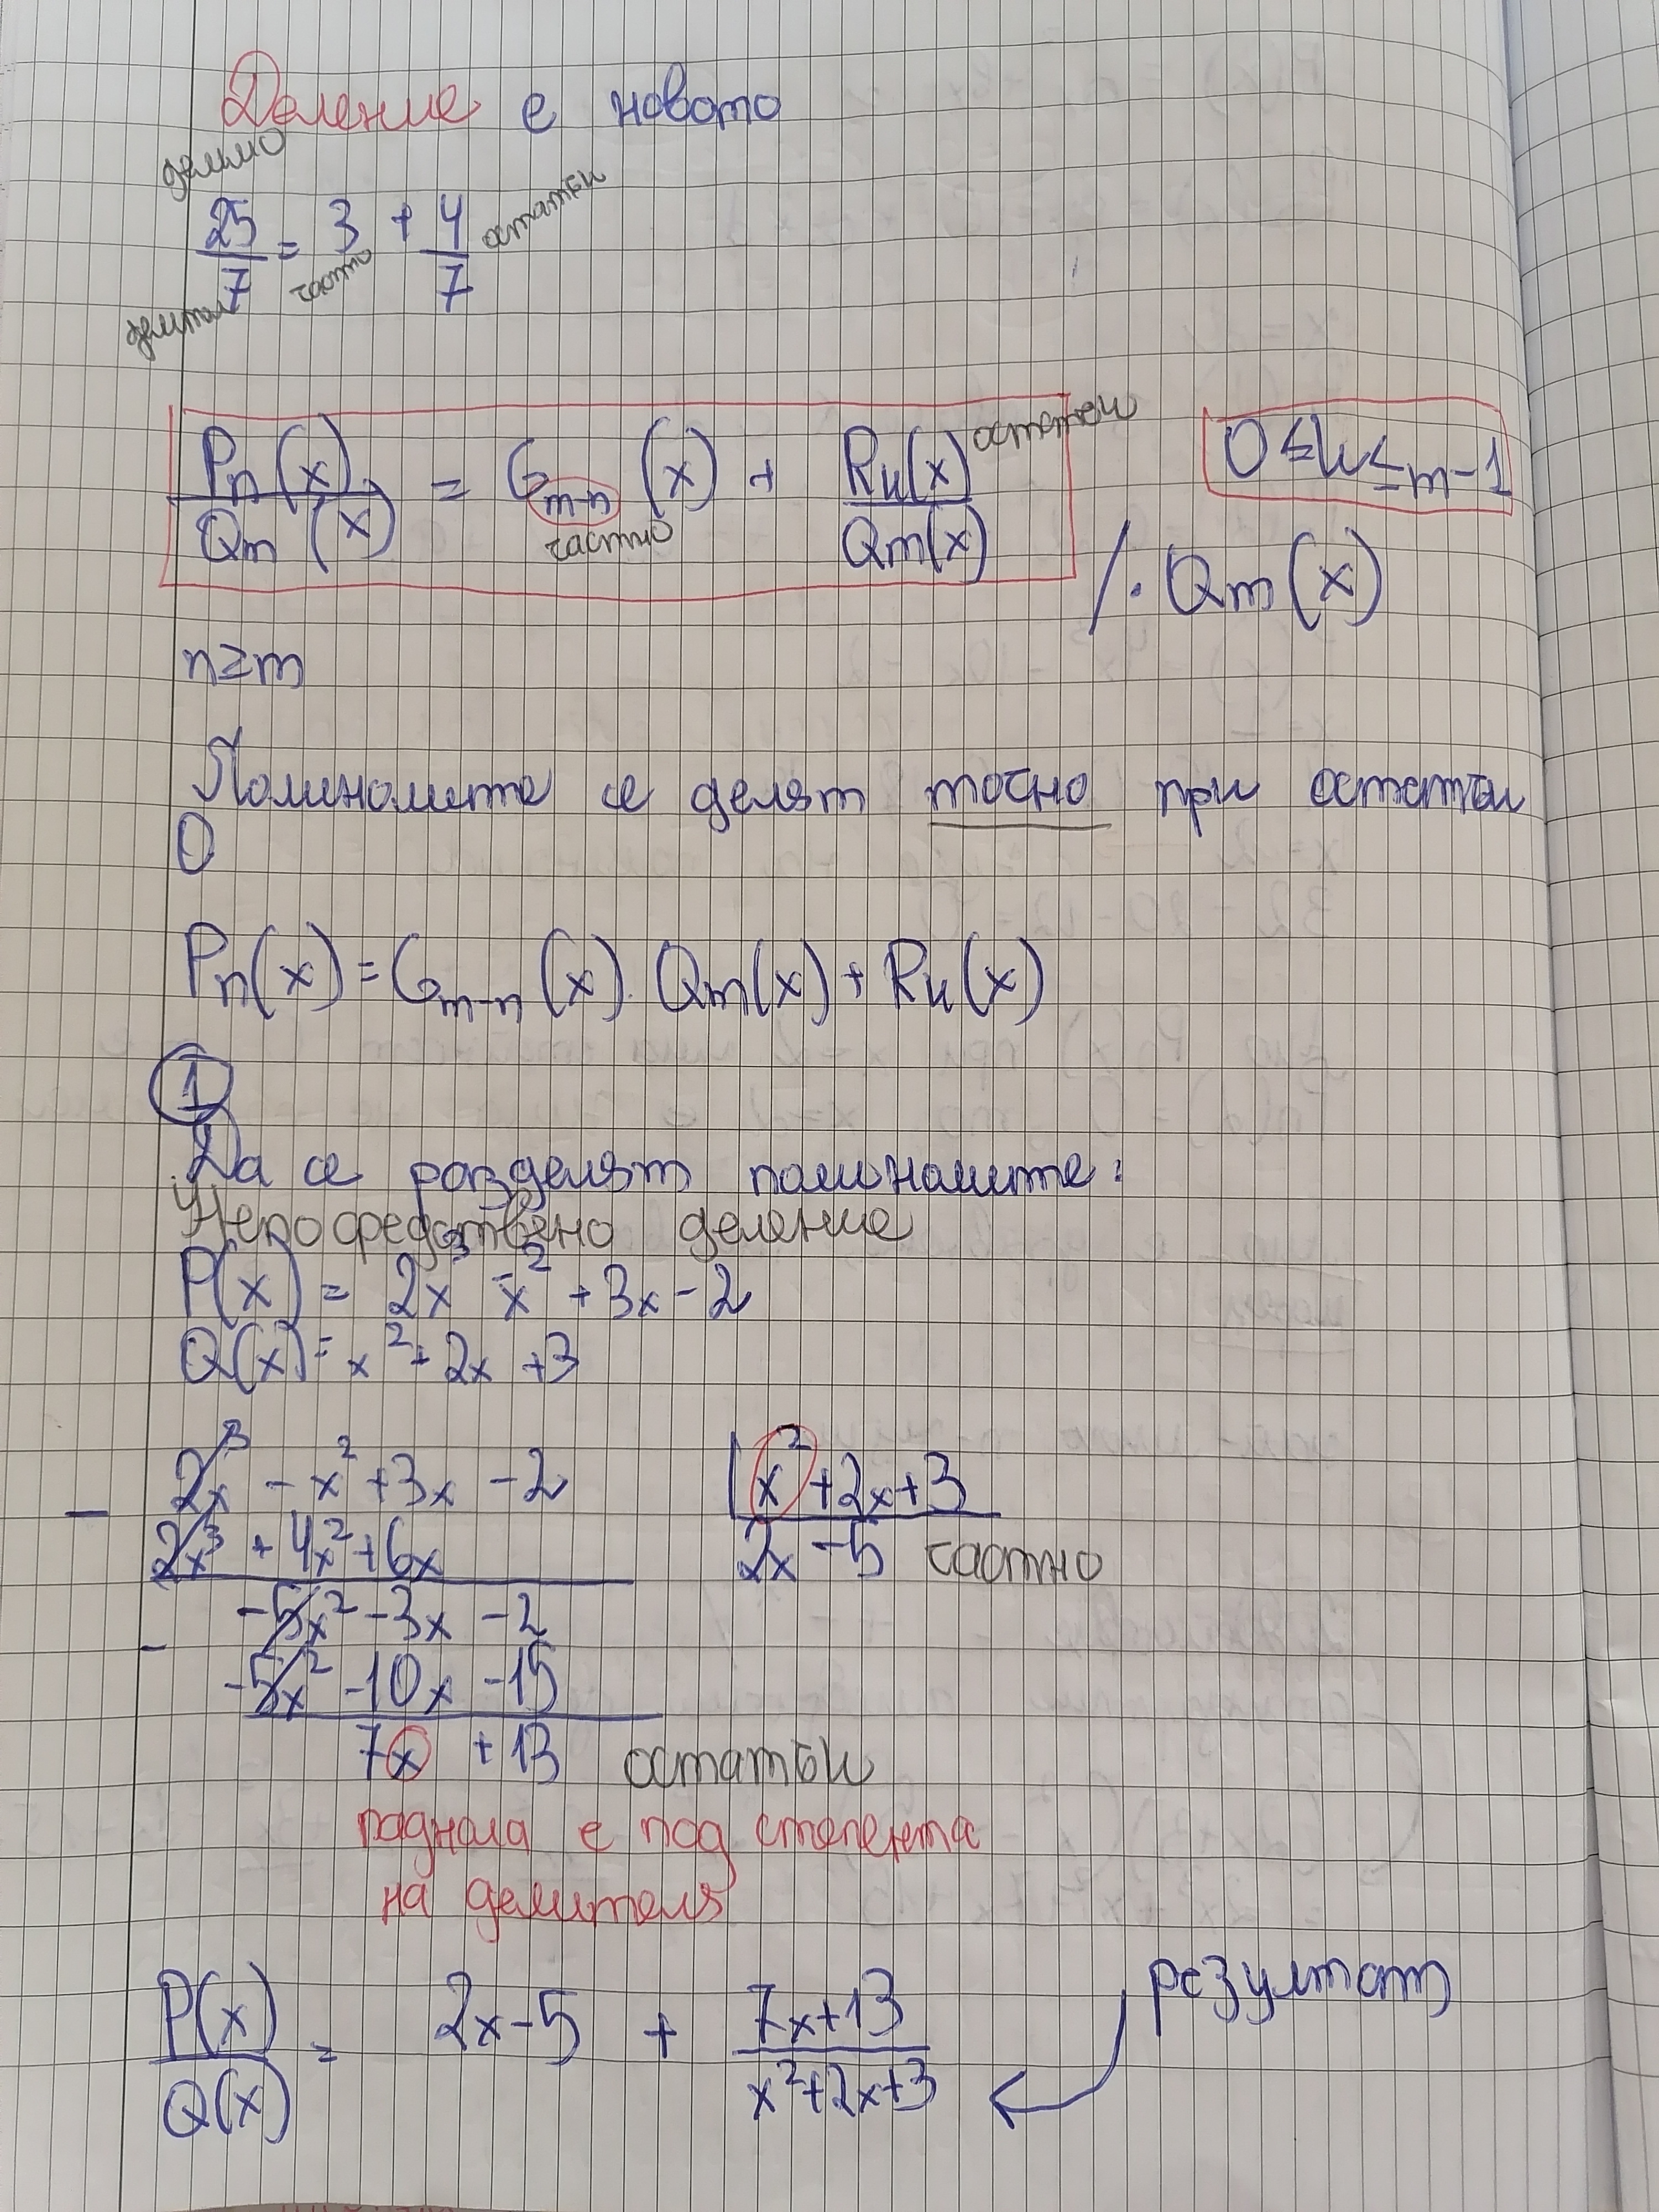 Деление е новото
делимо
25/7 = 3 + 4/7 остатък
делител частно
Pn(x)/Qm(x) = Gm-n(x) + Rk(x)/Qm(x) остатък 0 ≤ k ≤ m-1
частно
/. Qm(x)
n≥m
Полиномите се делят точно при остатък
0
Pn(x) = Gm-n(x). Qm(x) + Rk(x)
1
Да се разделят полиномите:
Непосредствено деление
P(x) = 2x³ - x² + 3x - 2
Q(x) = x² + 2x + 3
2x³ - x² + 3x - 2 | x² + 2x + 3
- 2x³ + 4x² + 6x 2x - 5 частно
-5x² - 3x - 2
- -5x² - 10x - 15
7x + 13 остатък
паднала е под степента
на делителя
P(x)/Q(x) = 2x-5 + 7x+13/x²+2x+3 резултат